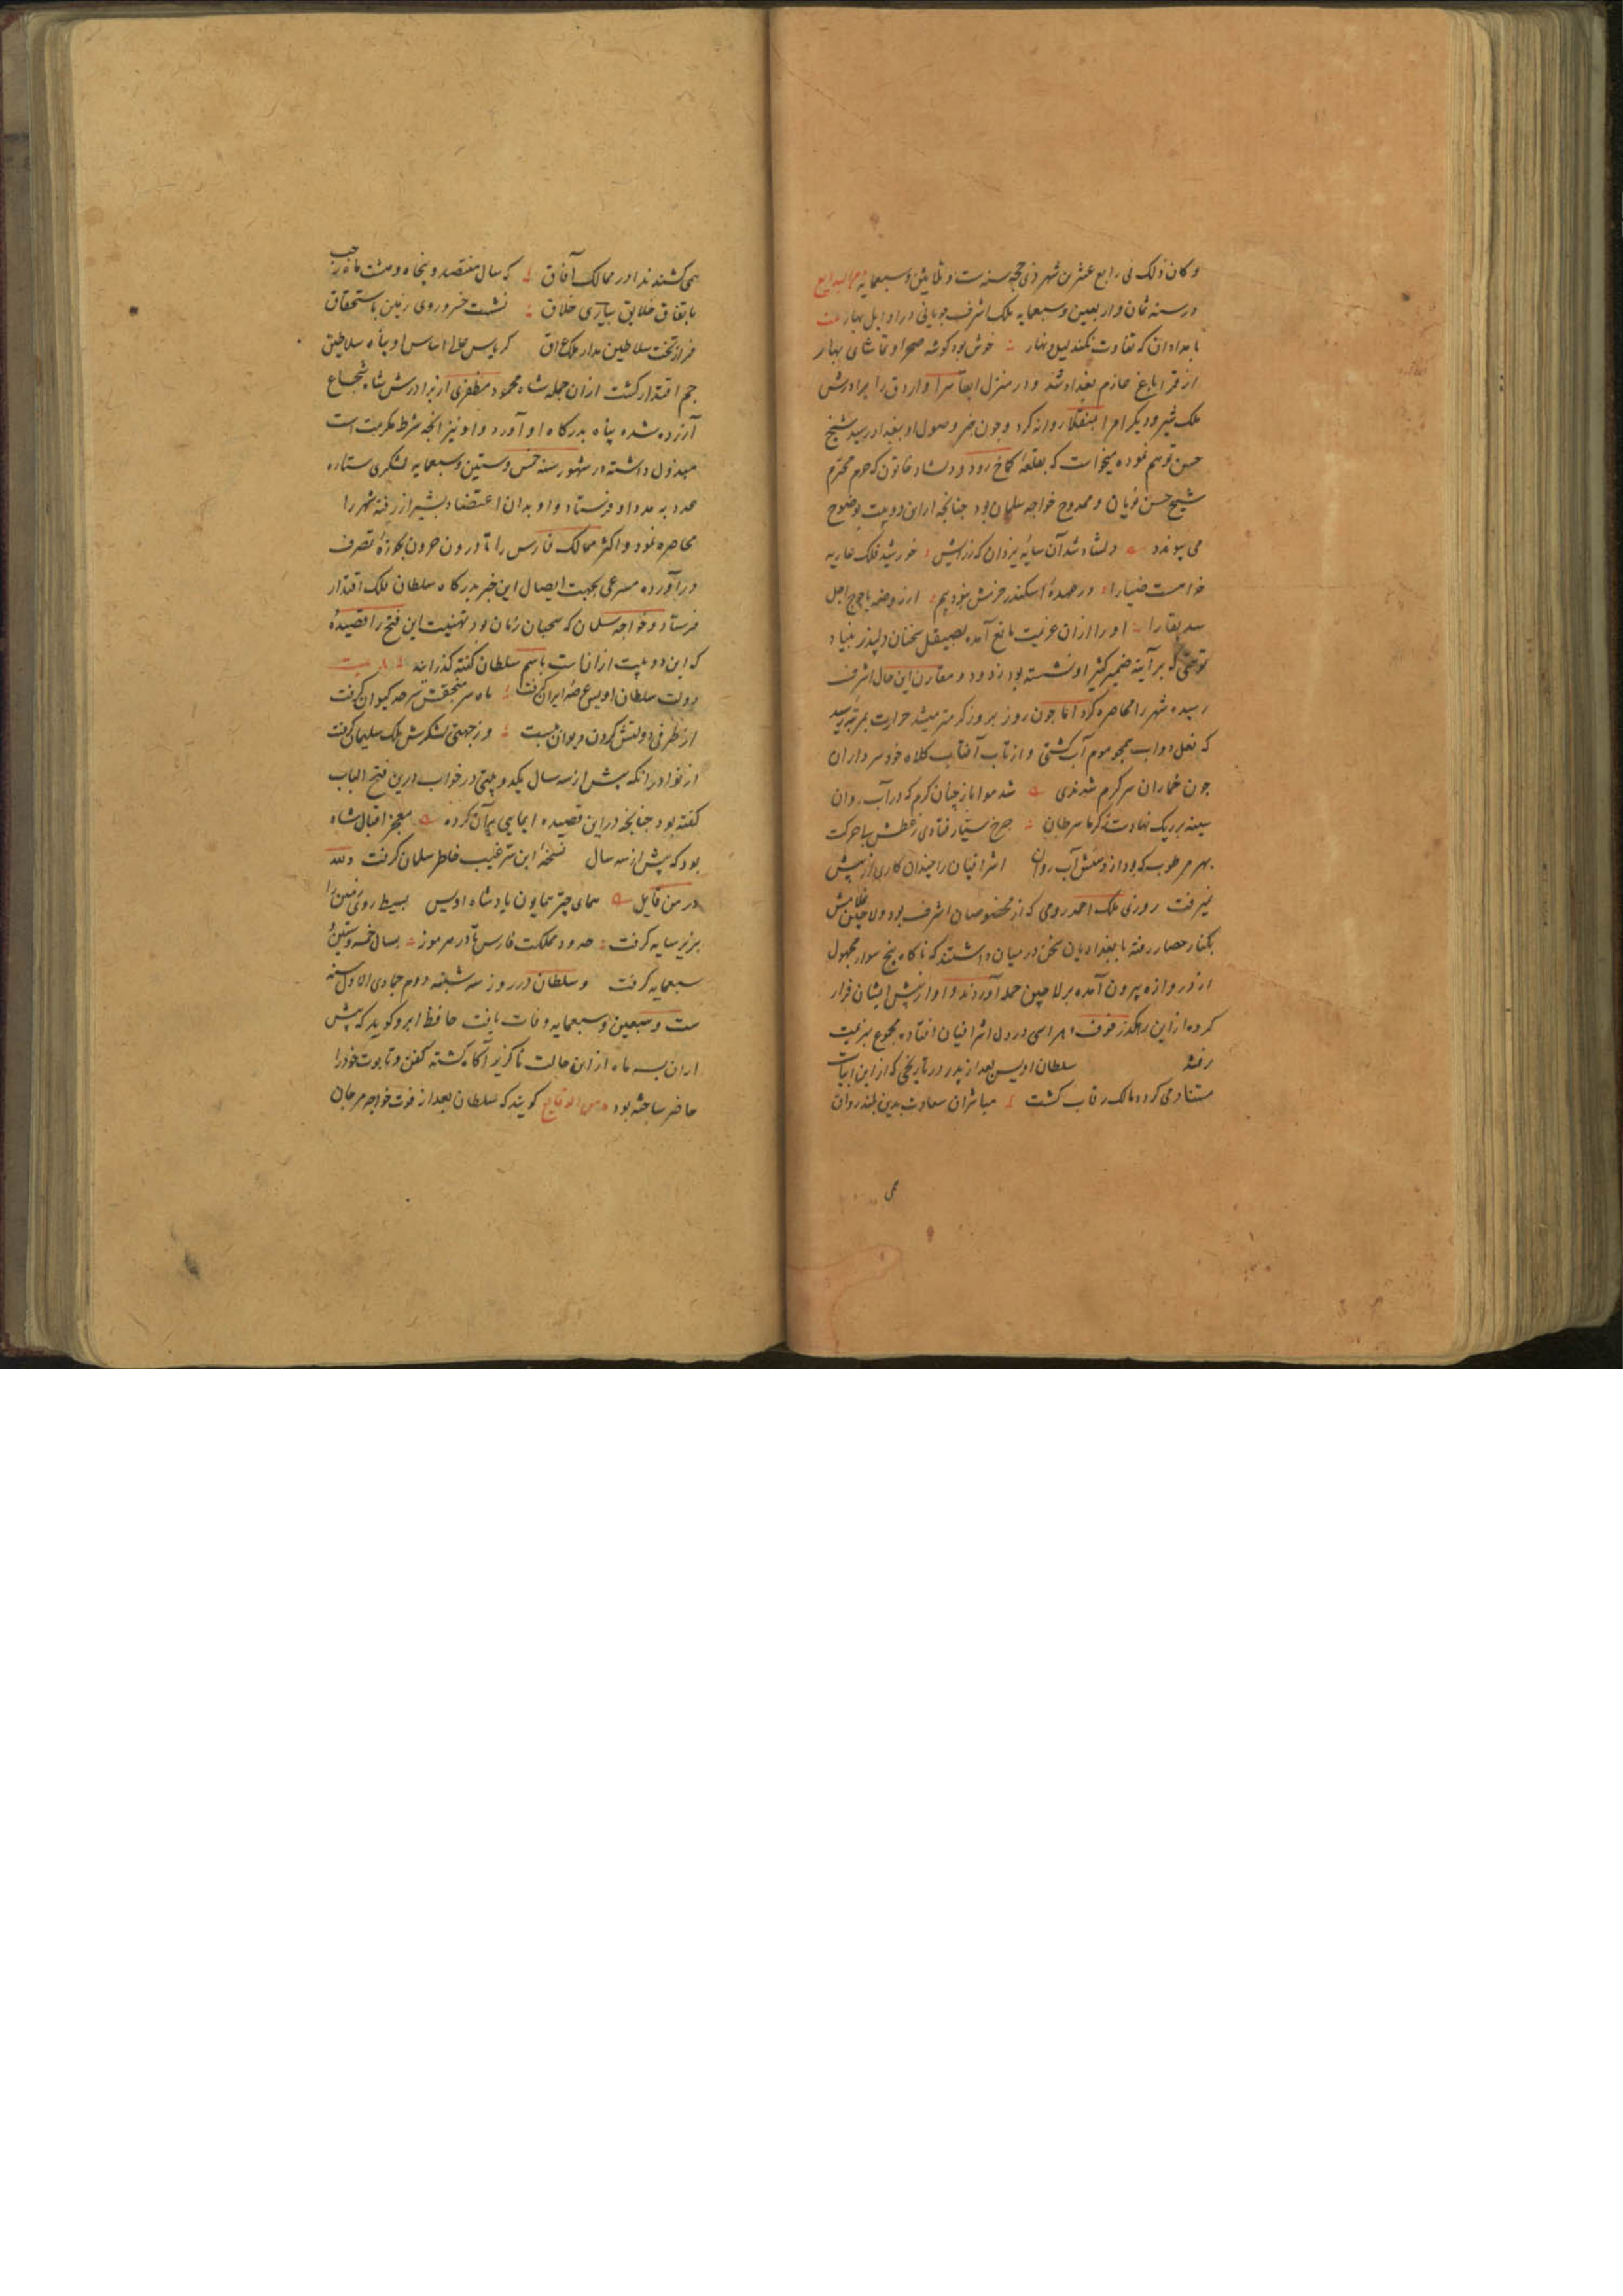 و کان ذلک فی رابع عشرین شهر ذی حجه سنه ست و ثلاثین و سبعمایه
در سنه ثمان و اربعین و سبعمایه ملک اشرف چوپانی در اوایل بهار
بامدادان که تفاوت نکند لیل و نهار خوش بود گوشه صحرا و تماشای بهار
از قراباغ عازم بغداد شد و در منزل را برادرش
ملک و دیگر امرا روانه کرد و چون خبر وصول او ببغداد رسید شیخ
حسن توهم نموده میخواست که بقلعهٔ کماخ رود و دلشاد خاتون که حرم محترم
شیخ حسن نویان و ممدوح خواجه سلمان بود چنانچه ازین دو بیت بوضوح
می پیوندد دلشاد شد آن سایهٔ یزدان که ز رایش خورشید فلک عاریه
خواست ضیا را در عهدهٔ اسکندر یاجوج اجل
سد بقا را او را ازان عزیمت مانع آمده بصیقل سخنان دلپذیر
که بر آینه ضمیر او نشسته بود زدود و مقارن این حال اشرف
رسیده شهر را محاصره کرد اما چون روز بروز گرمتر میشد حرارت بمرتبه رسید
که نعل دواب همچو موم آب گشتی و از تاب آفتاب کلاه خود سرداران
چون خماران سر گرم شدندی شد هوا باز چنان گرم که در آب روان
سینه بر ریک نهادست ز گرما سرطان چرخ سیار فتادی ز عطش با حرکت
بهر مرطوب که بود آب روان اشرافیان را چندان کاری از پیش
نمیرفت روزی ملک احمد رومی که از مخصوصان اشرف بود و لاچین غلامش
بکنار حصار رفته با بغدادیان سخن در میان داشتند که ناگاه پنج سوار مجهول
از دروازه بیرون آمده بر لاچین حمله آوردند و او از پیش ایشان فرار
کرده ازین رهگذر خوف و هراسی در دل اشرافیان افتاده مجموع بهزیمت
رفتند سلطان اویس بعد از پدر در تاریخی که ازین ابیات
مستفاد می گردد مالک رقاب گشت مباشران سعادت بدین بلند رواق
همی کشند ندا در ممالک آفاق که سال هفتصد و پنجاه و هشت ماه رجب
باتفاق خلایق بیاری خلاق نشست خسرو روی زمین باستحقاق
فراز تخت سلاطین مدار ملک عراق کریاس اساس او پناه سلاطین
جم اقتدار گشت ازان جمله شاه محمود مظفری از برادرش شاه شجاع
آزرده شده پناه بدرگاه او آورد و او نیز آنچه شرط مکرمت است
مبذول داشته در شهور سنه خمس و ستین و سبعمایه لشکری ستاره
عدد به مدد او فرستاد و او بدان اعتضاد بشیراز رفته شهر را
محاصره نمود و اکثر ممالک فارس را تا درون تصرف
درآورده مسرعی بجهت ایصال این خبر بدرگاه سلطان ملک اقتدار
فرستاد و خواجه سلمان که سحبان زمان بود تهنیت این فتح را قصیدهٔ
که این دو بیت ازانست باسم سلطان گفته گذرانید
دولت سلطان اویس عرصهٔ ایران گرفت ماه سر سنجقش سرحد کیوان گرفت
از طرفی دولتش گردن دیوان ببست وز جهتی لشکرش ملک سلیمان گرفت
از نوادر آنکه پیش از سه سال یکدو بیتی در خواب در این فتح الباب
گفته بود چنانچه درین قصیده ایمایی بر آن کرده معجز اقبال شاه
بود که پیش از سه سال نسخهٔ این سر غیب خاطر سلمان گرفت و لله
در من قایل همای چتر همایون پادشاه اویس بسیط روی زمین را
بزیر سایه گرفت حدود مملکت فارس تا در هرموز بسال خمس و ستین و
سبعمایه گرفت و سلطان در روز سه شنبه دوم جمادی الاول سنه
ست و سبعین و سبعمایه وفات یافت حافظ ابرو گوید که پیش
ازان بسه ماه ازان حالت ناگزیر آگاه گشته کفن و تابوت خود را
حاضر ساخته بود من الوقایع گویند که سلطان بعد از فوت خواجه مرجان